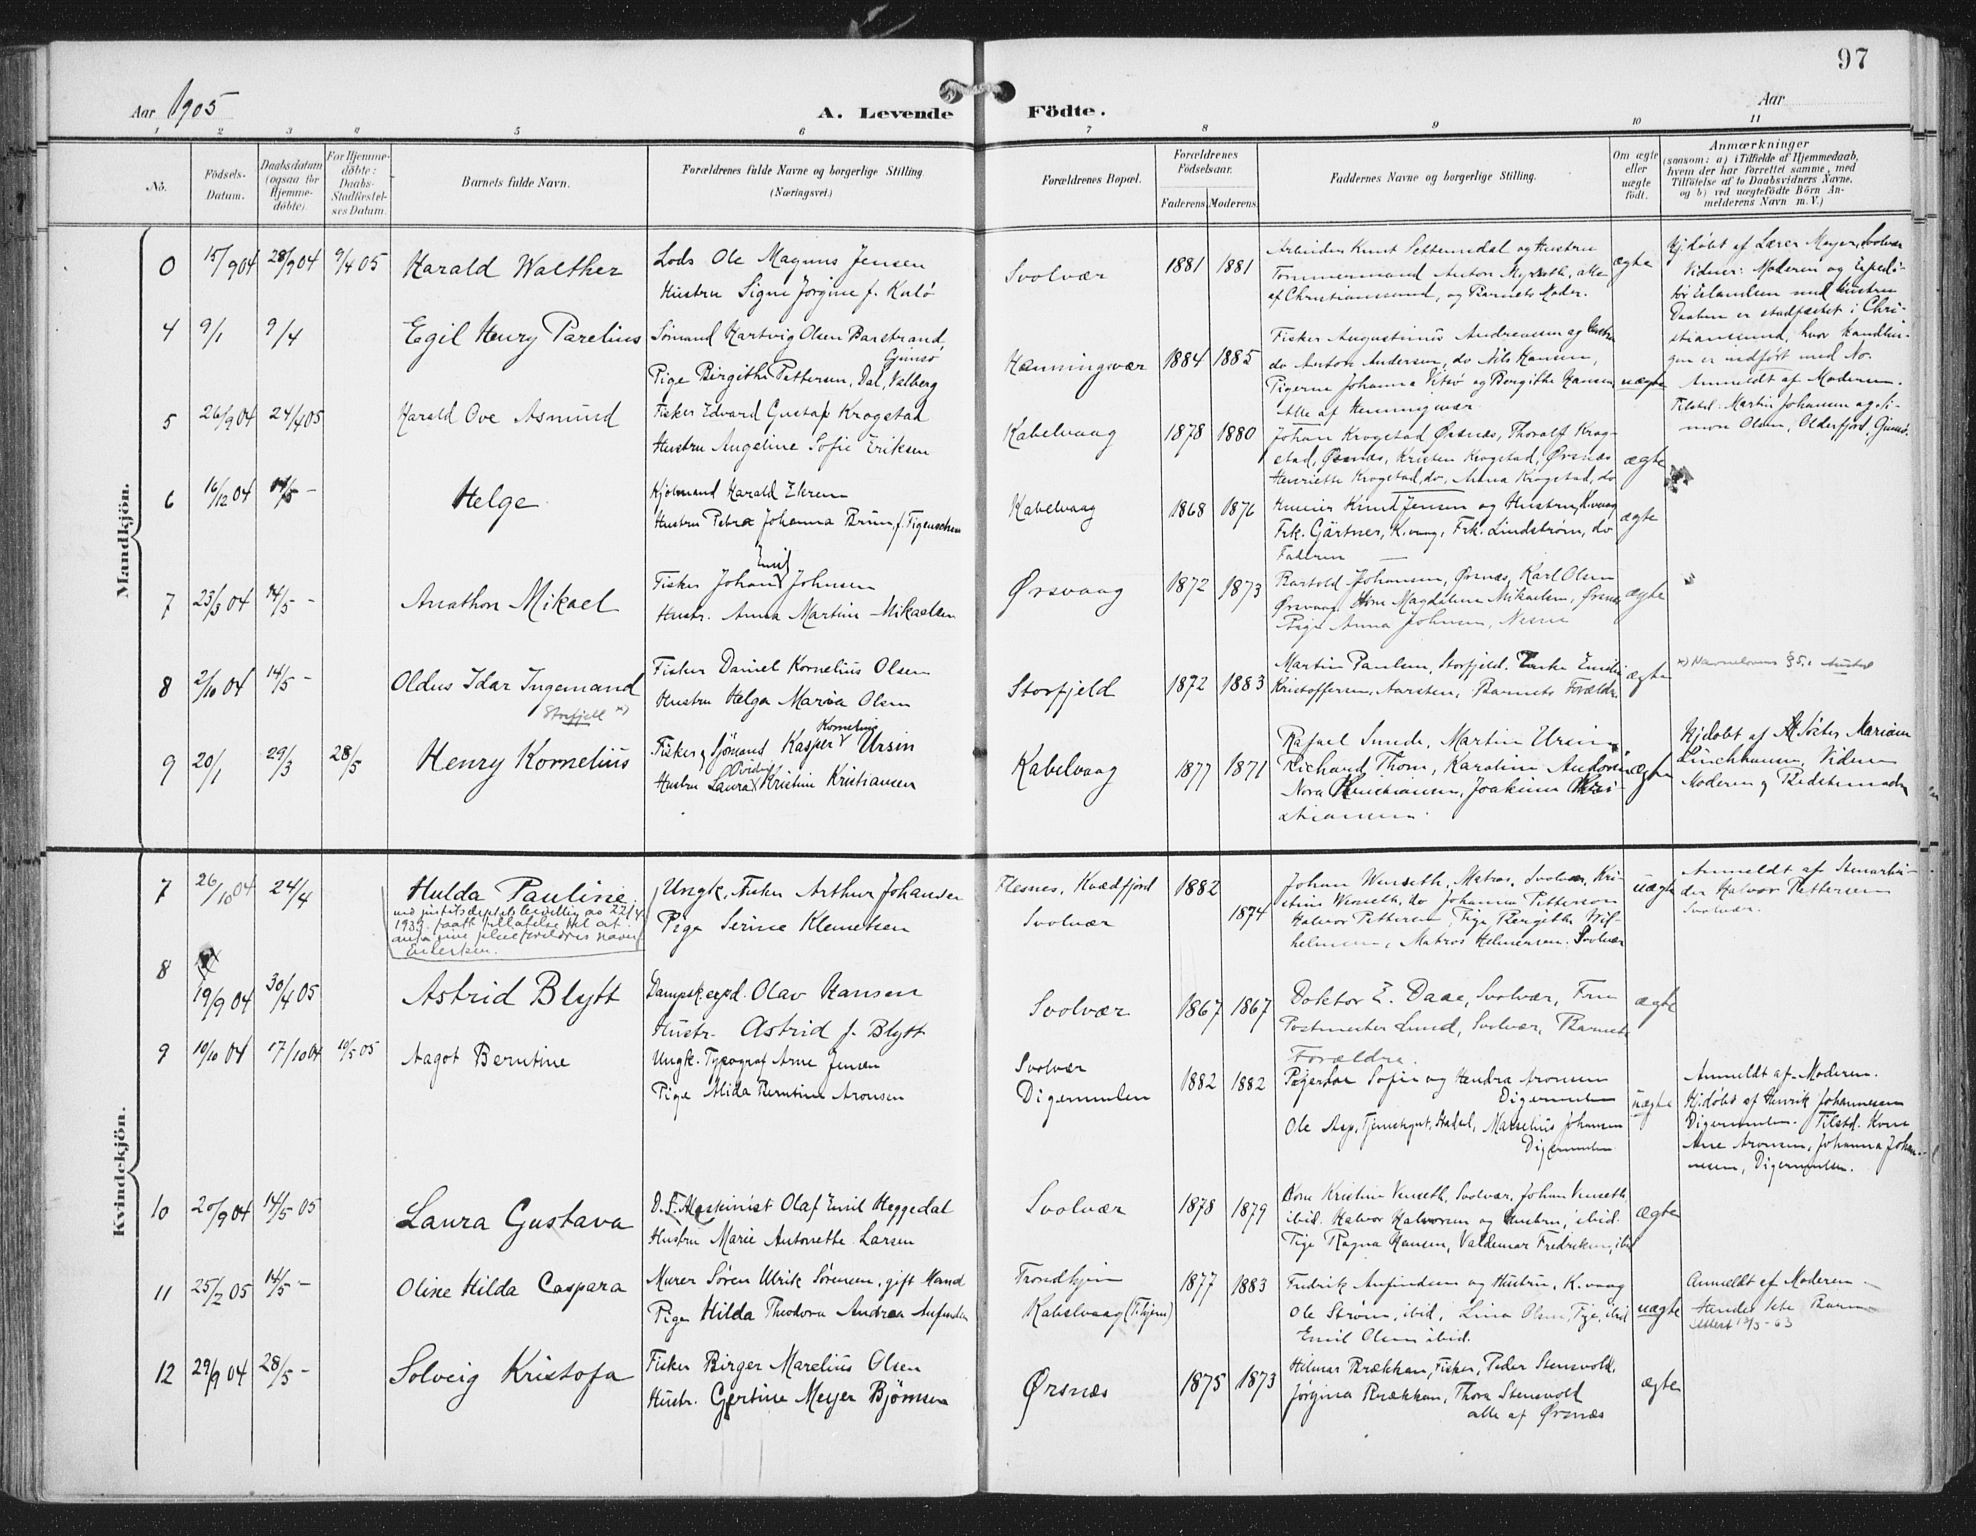 97
Aar 1905
A. Levende Födte.
Aar
1 2 3 4 5 6 7 8 9 10 11
No.
Födsels-Datum.
Daabsdatum (ogsaa for Hjemme-döbte).
For Hjemme-döbte: Daabs-Stadfæstel-ses Datum.
Barnets fulde Navn.
Forældrenes fulde Navne og borgerlige Stilling. (Næringsvei.)
Forældrenes Bopæl.
Forældrenes Födselsaar.
Faderens. Moderens.
Faddernes Navne og borgerlige Stilling.
Om ægte eller uægte födt.
Anmærkninger
(saasom: a) i Tilfælde af Hjemmedaab,
hvem der har forrettet samme, med
Tilföielse af to Daabsvidners Navne,
og b) ved uægtefödte Börn An-
melderens Navn m. V.)
Mandkjön.
0 15/9 04 28/9 04 9/4 05 Harald Walther
Lods Ole Magnus Jensen
Hustru Signe Jørgine f. Kulø
Svolvær 1881 1881
Arbeider Knut Settemsdal og Hustru
Tømmermand Anton Myrseth, alle
af Christianssund, og Barnets Moder.
ægte
Hjdøbt af Lærer Meyer, Svolvær
Vidner: Moderen og Expedi-
tør Erlandsen med Hustru
Daaben er stadfæstet i Chri-
stianssund, hvor handlin-
gen er indført med No.
4 9/1 9/4 Egil Henry Parelius
Sømand Hartvig Olsen Barstrand,
Gimsø
Pige Birgithe Pettersen, Dal, Valberg
Henningsvær 1884 1885
Fisker Augustinus Andreassen og Hustru
do Anton Andersen, do Nils Hansen,
Pigerne Johanna Vitsø og Borgithe Hansen
Alle af Henningsvær
uægte
Anmeldt af Moderen.
Tilsted: Martin Johansen og Si-
mon Olsen, Olderfjord, Gimsø.
5 26/9 04 24/4 05 Harald Ove Asmund
Fisker Edvard Gustaf Krogstad
Hustru Angeline Sofie Eriksen
Kabelvaag 1878 1880
Johan Krogstad Ørsnæs, Thoralf Krog-
stad, Ørsnæs, Kristen Krogstad, Ørsnæs
Henriette Krogstad, do, Anna Krogstad, do
ægte
6 16/12 04 14/5 – Helge
Hjólmand Harald Ehren
Hustru Petra Johanna Bruun f. Figenschou
Kabelvaag 1868 1876
Knut Jensen og Hustru, K.vaag
Frk. Gärtner, K.vaag, Frk. Lindstrøm, do
Faderen
ægte
7 23/3 04 14/5 – Anathon Mikael
Fisker Johan Emil Johnsen
Hustr. Anna Martine Mikaelsen
Ørsvaag 1872 1873
Bartold Johansen, Ørsnæs, Karl Olsen
Ørsvaag, Kone Magdalena Mikaelsen, Ørsnæs
Pige Anna Johnsen, Nesne
ægte
8 2/10 04 14/5 – Oldus Idar Ingemand
Storfjell *)
Fisker Daniel Kornelius Olsen
Hustru Helga Maria Olsen
Storfjeld 1872 1883
Martin Paulsen, Storfjeld. Enke Emilie
Kristoffersen, Aarsten, Barnets Forældre
ægte
*) Navnelovens § 5.
9 20/1 29/3 28/5 Henry Kornelius
Fisker, Sjømand Kasper Kornelius Ursin
Hustru Laura Ovidia Kristine Kristiansen
Kabelvaag 1877 1871
Rafael Sunde, Martin Ursin,
Richard Thom, Karoline
Nora Kristiansen, Joakim Kri-
stiansen.
ægte
Hjdøbt af Mariane
Vidner
Moderen og Bedstemoder
Kvindekjön.
7 26/10 04 24/4 Hulda Pauline
ved justitsdeptets bevilling av 22/4
1933 faatt tillatelse til at
anta sine pleieforeldres navn
Eilertsen.
Ungk. Fisker Arthur Johansen
Pige Serine Klemetsen
Flesnes, Kvædfjord 1882
Svolvær 1874
Johan Wenseth, Matros, Svolvær, Kri-
stine Wenseth, do Johanna Pettersen
Halvor Pettersen, Pige Bergithe Wil-
helmsen, Matros Helmersen. Svolvær
uægte
Anmeldt af Stenarbei-
der Halvor Pettersen
Svolvær.
8 19/9 04 30/4 05 Astrid Blytt
Dampskexpd. Olav Hansen
Hustr. Astrid f. Blytt
Svolvær 1867 1867
Doktor E. Daae, Svolvær, Fru
Postmester Lund, Svolvær, Barnets
Forældre.
ægte
9 19/10 04 17/10 04 19/5 05 Aagot Berntine
Ungk. Typograf Arne Jensen
Pige Alida Berntine Aronsen
Svolvær
Digermulen 1882 1882
Pigerne Sofie og Hendra Aronsen
Digermulen
Ole Asp, Tjenestegut, Marselius Johansen
Digermulen
uægte
Anmeldt af Moderen.
Hjdøbt af Henrik Johannesen
Digermulen. Tilsted. Kone
Ane Aronsen, Johanna Johan-
nesen, Digermulen.
10 20/9 04 14/5 05 Laura Gustava
D.S. Maskinist Olaf Emil Heggedal
Hustru Marie Antonette Larsen
Svolvær 1878 1879
Kone Kristine Venseth, Svolvær, Johan Venseth,
ibid. Halvor Halvorsen og Hustru, ibid.
Pige Ragna Hansen, Valdemar Fredriksen, ibid
ægte
11 25/2 05 14/5 – Oline Hilda Caspara
Murer Sören Ulrik Sörensen, gift Mand
Pige Hilda Theodora Andrea Anfindsen
Trondhjem
Kabelvaag (T.hjem) 1877 1883
Fredrik Anfindsen og Hustru, K.vaag
Ole Strøm, ibid, Lina Olsen, Pige, ibid
Emil Olsen ibid.
uægte
Anmeldt af Moderen –
Hendes 1ste Barn
12 29/9 04 28/5 – Solveig Kristofa
Fisker Birger Marelius Olsen
Hustr. Gjertine Meyer Bjørnsen
Ørsnæs 1875 1873
Hilmar Brækkan, Fisker, Peder Stensvold,
Jørgina Brækkan, Thora Stensvold
alle af Ørsnæs
ægte